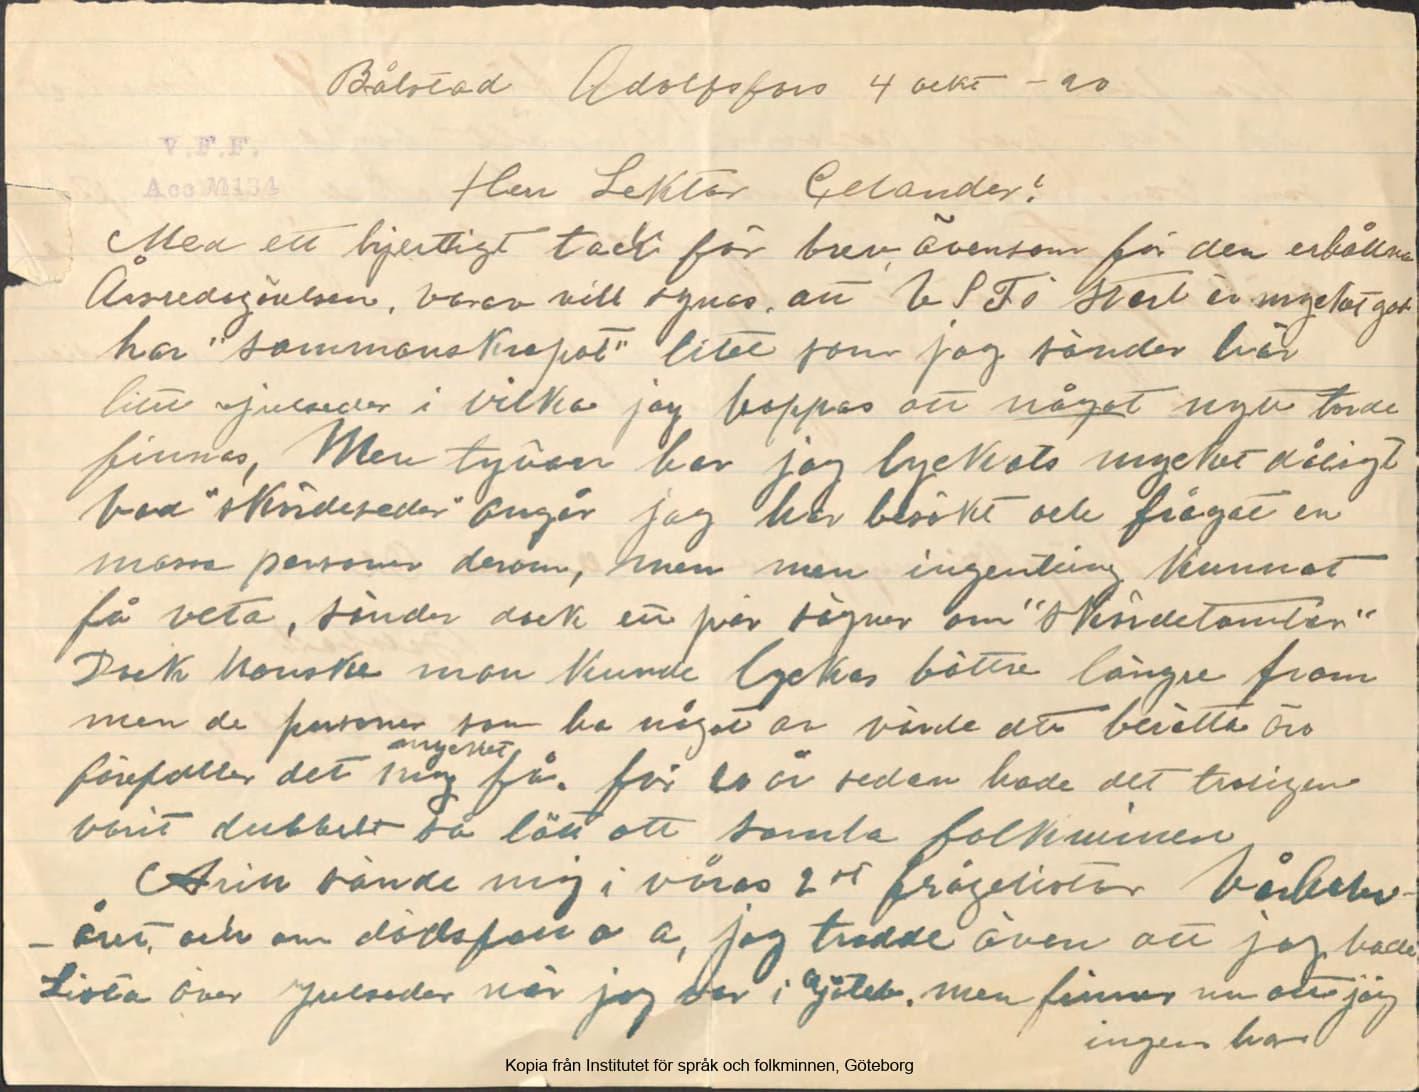 Bålstad Adolfsfors 4 ockt - 20
V.F.F.
Acc M134
Herr Lektor Gelander!
Med ett hjertligt tack för brev, ävensom för den erhållna
Årsredogörelsen, varav vill synas, att V S Fö start är mycket god
har "sammanskrapat" litet som jag sänder här
litet julseder i vilka jag hoppas att något nytt torde
finnas, Men tyvärr har jag lyckats mycket dåligt
vad "skördeseder" angår jag har besökt och frågat en
massa personer derom, men men ingenting kunnat
få veta, sänder dock ett par sägner om "skördetomtar"
Dock kanske man kunde lyckas bättre längre fram
men de personer som ha något av värde att berätta äro
förefaller det mig mycket få. för 20 år sedan hade det troligen
varit dubbelt så lätt att samla folkminnen
sände mig i våras 2 st frågelistor
året, och om dödsfall o a, jag trodde även att jag hade
Lista över Julseder när jag var i Göteb. men finner nu att jag
ingen har
Kopia från Institutet för språk och folkminnen, Göteborg